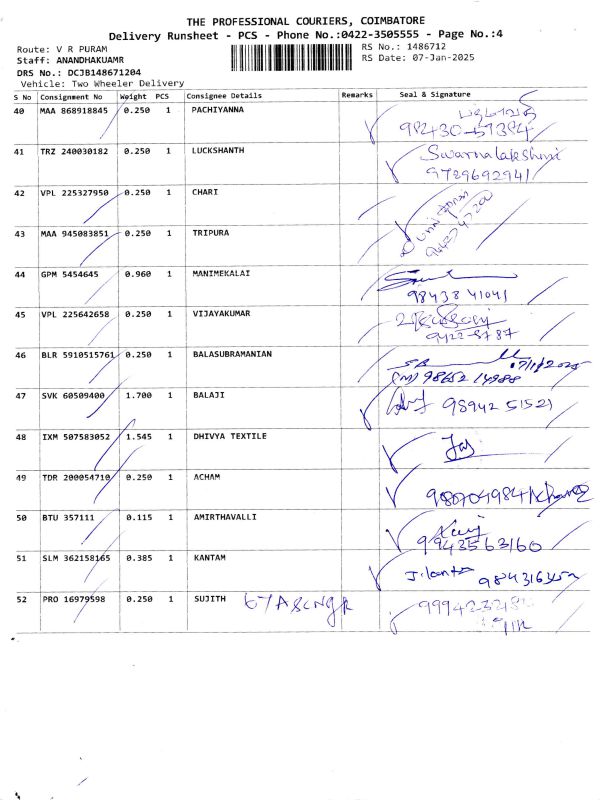 THE PROFESSIONAL COURIERS, COIMBATORE
Delivery Runsheet - PCS - Phone No.:0422-3505555 - Page No.:4
Route: V R PURAM RS No.: 1486712
Staff: ANANDHAKUAMR RS Date: 07-Jan-2025
DRS No.: DCJB148671204
Vehicle: Two Wheeler Delivery
S No Consignment No Weight PCS Consignee Details Remarks Seal & Signature
40 MAA 868918845 0.250 1 PACHIYANNA
41 TRZ 240030182 0.250 1 LUCKSHANTH Swarnalakshmi
9729692941
42 VPL 225327950 0.250 1 CHARI
43 MAA 945083851 0.250 1 TRIPURA
44 GPM 5454645 0.960 1 MANIMEKALAI
98438 41041
45 VPL 225642658 0.250 1 VIJAYAKUMAR
46 BLR 5910515761 0.250 1 BALASUBRAMANIAN
47 SVK 60509400 1.700 1 BALAJI 98942 51521
48 IXM 507583052 1.545 1 DHIVYA TEXTILE
49 TDR 200054710 0.250 1 ACHAM
50 BTU 357111 0.115 1 AMIRTHAVALLI
9943563160
51 SLM 362158165 0.385 1 KANTAM
52 PRO 16979598 0.250 1 SUJITH